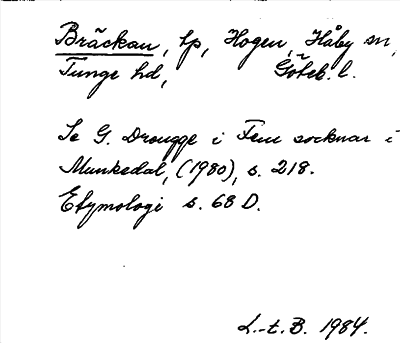 Bräckan, tp, Hogen, Håby sn,
Tunge hd, Göteb. l.
Se G. Drougge i Fem socknar i
Munkedal, (1980), s. 218.
Etymologi s. 68 D.
L.-t. B. 1984.